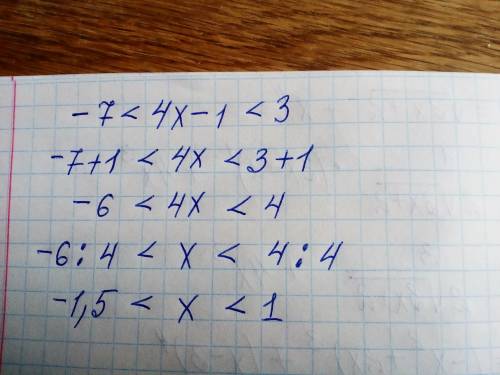 -7 < 4x-1 < 3
-7+1 < 4x < 3+1
-6 < 4x < 4
-6:4 < x < 4:4
-1,5 < x < 1